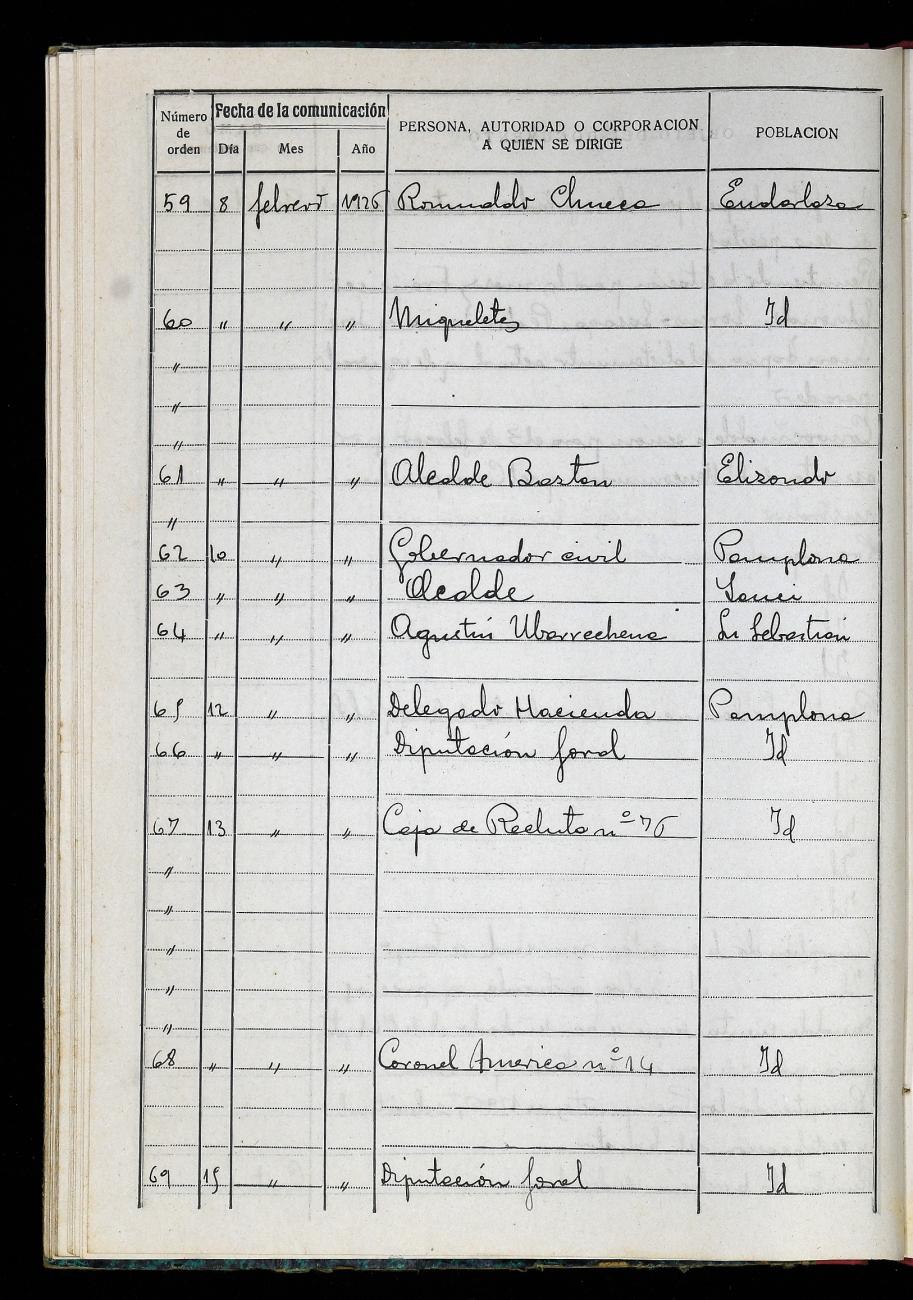 Número de orden Fecha de la comunicación PERSONA, AUTORIDAD O CORPORACION A QUIEN SE DIRIGE POBLACION
Día Mes Año
59 8 febrero 1926 Romualdo Chueca Endarlaza
60 " " " Miqueletes Id
"
"
"
61 " " " Alcalde Baztan Elizondo
"
62 10 " " Gobernador civil Pamplona
63 " " " Alcalde
64 " " " Agustín Ubarrechena Sn Sebastián
65 12 " " Delegado Hacienda Pamplona
66 " " " Diputación foral Id
67 13 " " Caja de Recluta nº 76 Id
"
"
"
"
"
68 " " " Coronel America nº 14 Id
69 15 " " Diputación foral Id